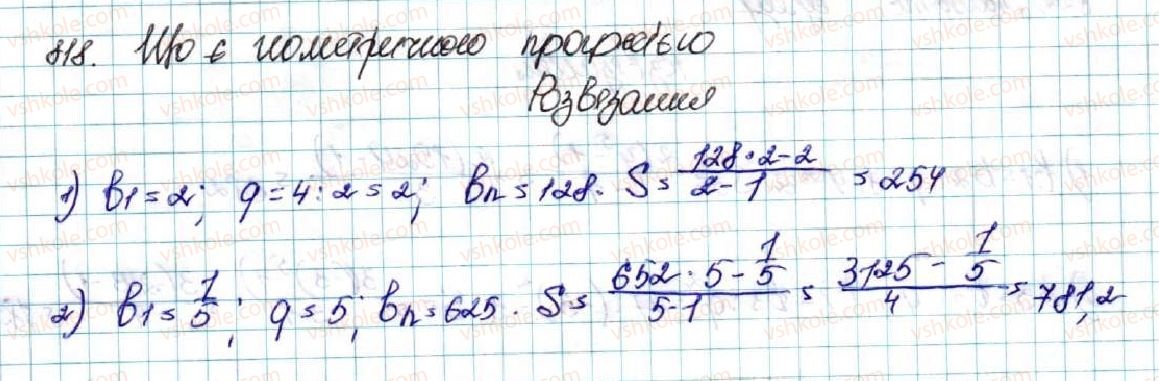 818. Що є геометричною прогресією
Розвезання
1) b₁ = 2; q = 4 : 2 = 2; bn = 128. S = (128 · 2 - 2)/(2 - 1) = 254
2) b₁ = 1/5; q = 5; bn = 625. S = (652 · 5 - 1/5)/(5-1) = (3125 - 1/5)/4 = 781,2